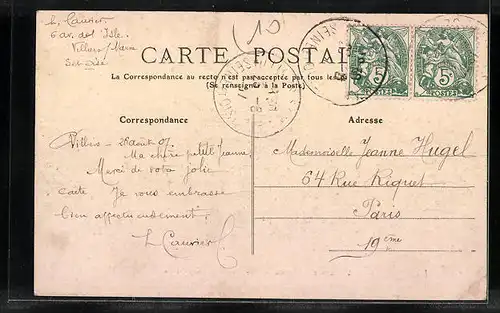 L. Caurier
6 av. de l'Isle.
Villiers s/Marne
(10
CARTE POSTALE
La Correspondance au recto n'est pas acceptée par tous les
(Se renseigner à la Poste)
5 5
POSTES POSTES
Correspondance
Villiers - 28 août 07
Ma chère petite Jeanne,
Merci de votre jolie
carte Je vous embrasse
bien affectueusement.
L Caurier
Adresse
Mademoiselle Jeanne Hugel
64 Rue Riquet
Paris
19ème